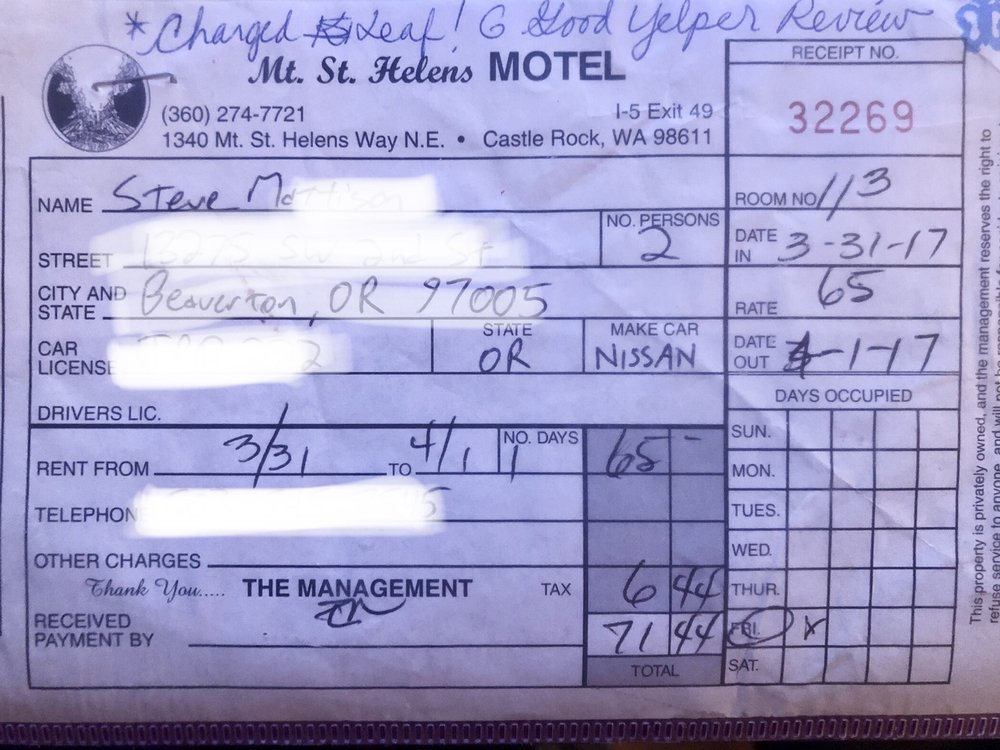 * Charged Leaf! G Good Yelper Review
Mt. St. Helens MOTEL
(360) 274-7721 I-5 Exit 49
1340 Mt. St. Helens Way N.E. • Castle Rock, WA 98611
RECEIPT NO.
32269
NAME Steve
NO. PERSONS 2
STREET
CITY AND STATE Beaverton, OR 97005
CAR LICENSE
STATE OR
MAKE CAR NISSAN
DRIVERS LIC.
ROOM NO 113
DATE IN 3-31-17
RATE 65
DATE OUT 4-1-17
DAYS OCCUPIED
RENT FROM 3/31 TO 4/1 NO. DAYS 1 65 -
TELEPHON
OTHER CHARGES
Thank You..... THE MANAGEMENT TAX 6 44
RECEIVED PAYMENT BY 71 44
TOTAL
SUN.
MON.
TUES.
WED.
THUR.
FRI. X
SAT.
This property is privately owned, and the management reserves the right to
refuse service to anyone, and will not be